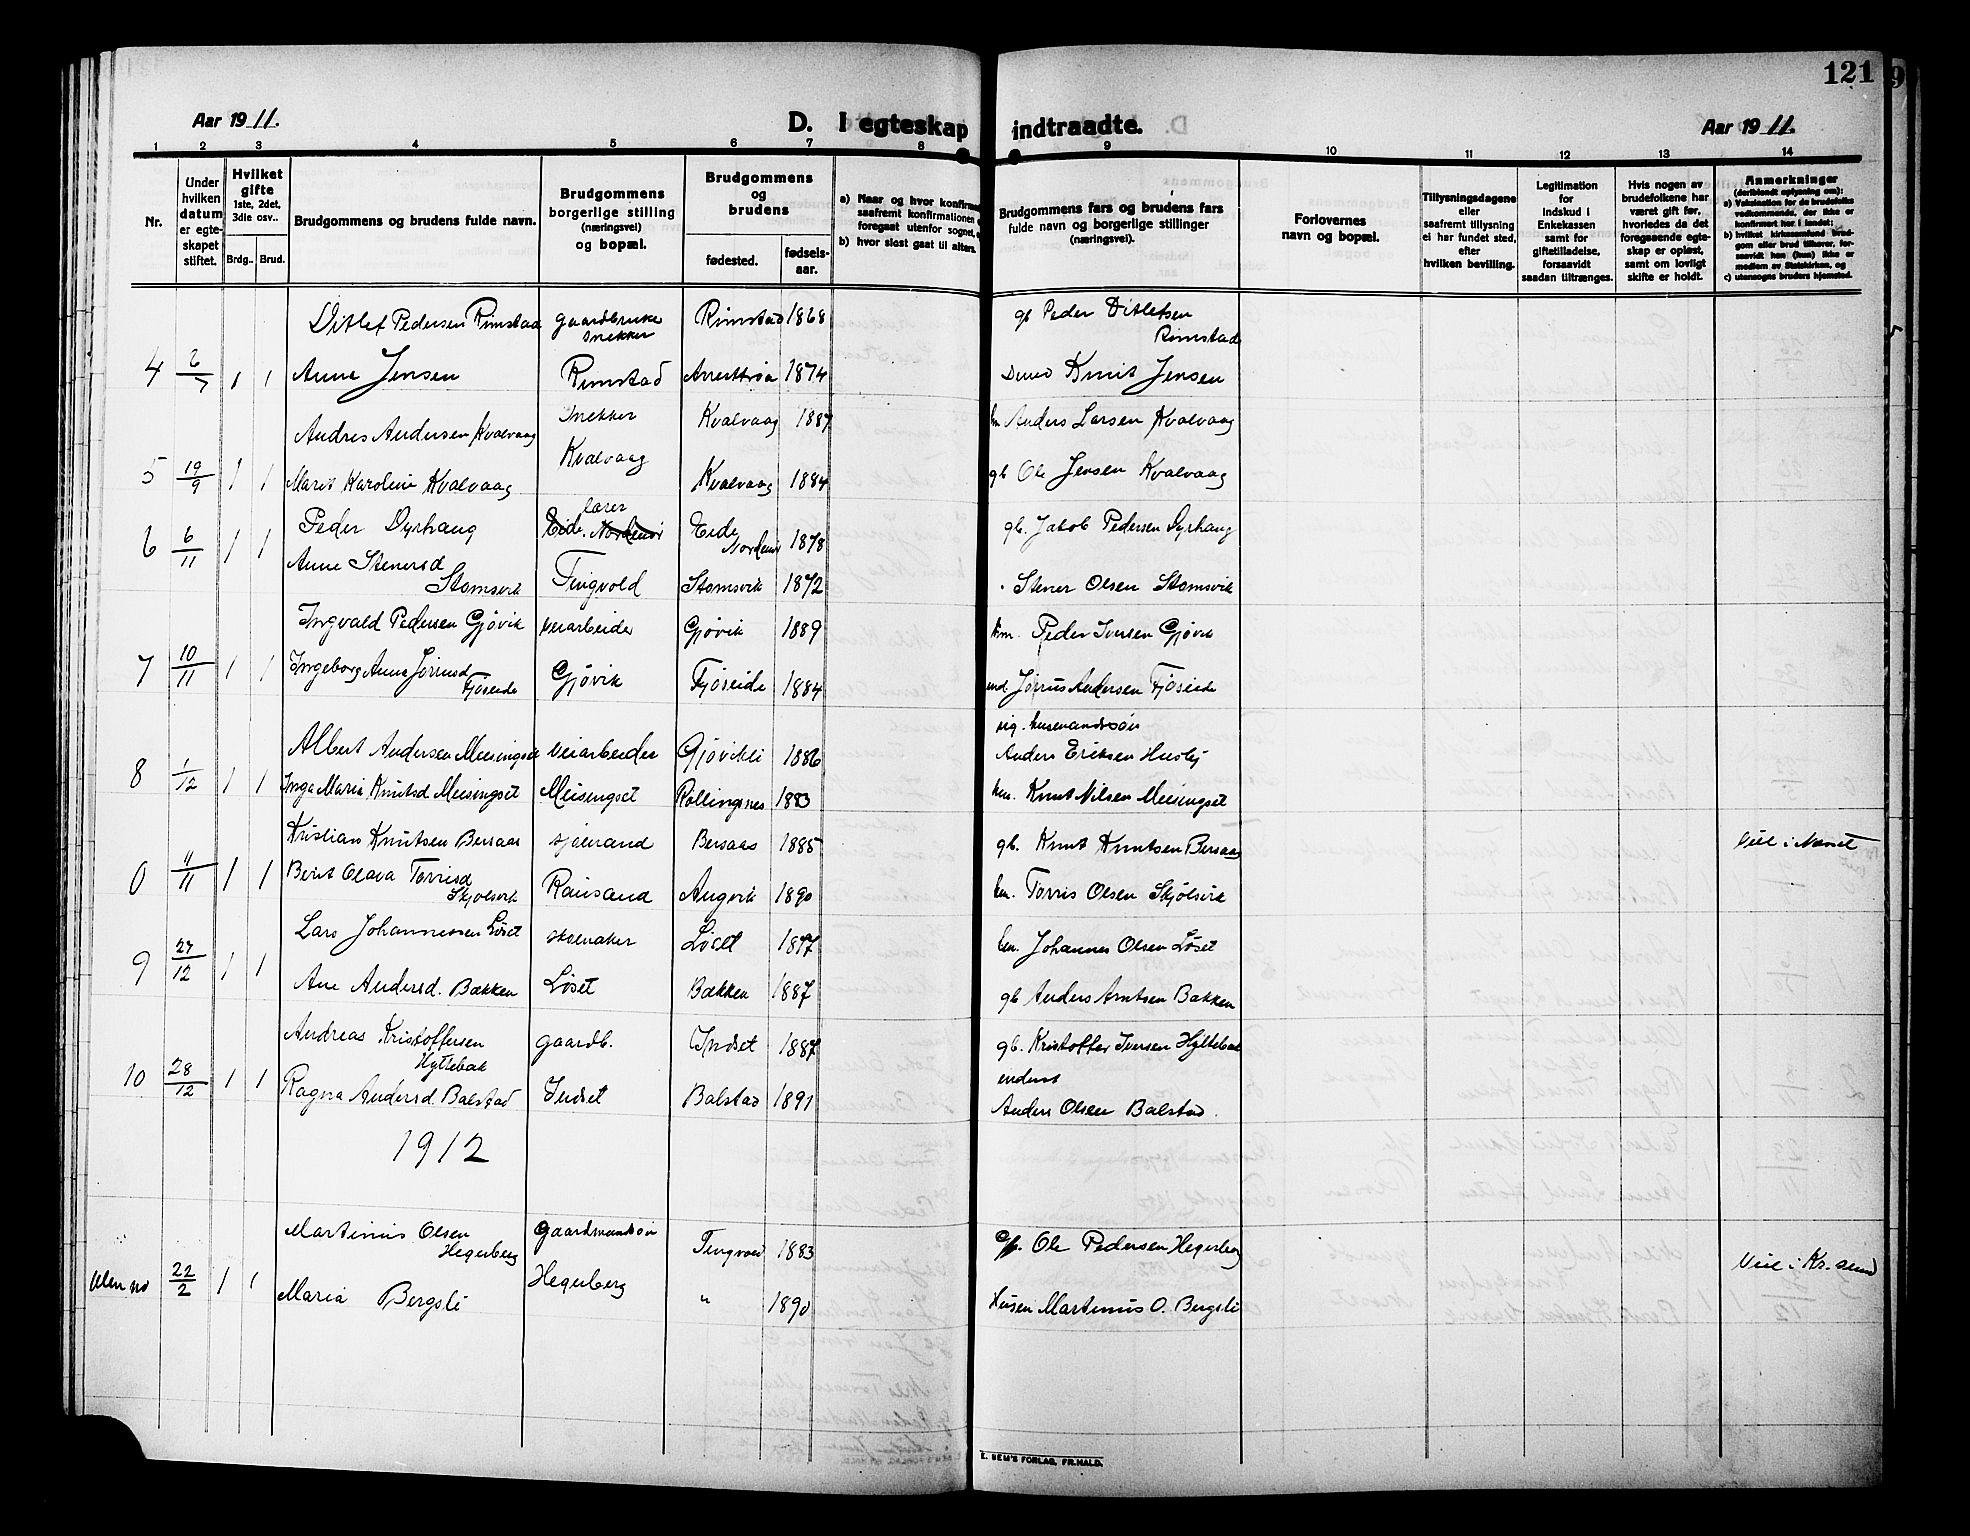 121
Aar 1911.
D. I egteskap indtraadte.
Aar 1911.
1 2 3 4 5 6 7 8 9 10 11 12 13 14
Nr.
Under hvilken datum er egteskapet stiftet.
Hvilket gifte 1ste, 2det, 3die osv..
Brdg.. Brud.
Brudgommens og brudens fulde navn.
Brudgommens borgerlige stilling (næringsvei) og bopæl.
Brudgommens og brudens
fødested. fødselsaar.
a) Naar og hvor konfirm
saafremt konfirmationen
foregaat utenfor sognet,
b) hvor sidst gaat til alters.
Brudgommens fars og brudens fars fulde navn og borgerlige stillinger (næringsvei).
Forlovernes navn og bopæl.
Tillysningsdagene eller saafremt tillysning ei har fundet sted, efter hvilken bevilling.
Legitimation for indskud i Enkekassen samt for giftetilladelse, forsaavidt saadan tiltrænges.
Hvis nogen av brudefolkene har været gift før, hvorledes da det foregaaende egteskap er opløst, samt om lovligt skifte er holdt.
Anmerkninger
(deriblandt oplysning om):
a) Vaksination for de brudefolks vedkommende, der ikke er konfirmert her i landet;
b) hvilket kirkesamfund brudgom eller brud tilhører, forsaavidt han (hun) ikke er medlem av Statskirken, og
c) utensogns bruders hjemsted.
Ditlef Pedersen Rimstad gaardbruker snekker Rimstad 1868 gb Peder Ditlefsen Rimstad
4 2/7 1 1 Anna Jensen Rimstad 1874 Knut Jensen
Andres Andersen Kvalvaag Snekker Kvalvaag 1887 Anders Larsen Kvalvaag
5 19/9 1 1 Marit Karoline Kvalvaag Kvalvaag Kvalvaag 1884 gb Ole Jensen Kvalvaag
Peder Dyrhaug lærer Eide. Nordmør Eide Nordmør 1878 gb. Jakob Pedersen Dyrhaug
6 6/11 1 1 Anne Stenersd Stomsvik Tingvold Stomsvik 1872 Stener Olsen Stomsvik
Ingvald Pedersen Gjøvik veiarbeider Gjøvik 1889 hm. Peder Iversen Gjøvik
7 10/11 1 1 Ingeborg Anna Jørrusd Fjøseide Gjøvik Fjøseide 1884 Jørrus Andersen Fjøseide
Albert Andersen Meisingset veiarbeider Gjøvikli 1886 Anders Eriksen Husby
8 1/12 1 1 Inga Maria Knutsd Meisingset Meisingset Rollingsnes 1883 hu. Knut Nilsen Meisingset
Kristian Knutsen Bersaas sjømand Bersaas 1885 gb. Knut Knutsen Bersaas Viet i Nesset
0 11/11 1 1 Berit Olava Torrisd Skjølsvik Rausand Angvik 1890 hu. Torris Olsen Skjølsvik
Lars Johannessen Løset skomaker Løset hu. Johannes Olsen Løset
9 27/12 1 1 Ane Andersd. Bakken Løset Bakken 1887 gb Anders Arntsen Bakken
Andreas Kristoffersen Hyltebak gaardb. Indset 1887 gb. Kristoffer Iversen Hyltebak
10 28/12 1 1 Ragna Andersd. Balstad Indset Balstad 1891 Anders Olsen Balstad.
1912
Martinus Olsen Hegerberg gaardmandsøn Tingvold 1883 Ole Pedersen Hegerberg
Uten no 22/2 1 1 Maria Bergsli Hegerberg " 1890 Husm Martinus O. Bergsli Viet i Kr.sund
E. SEM'S FORLAG, FR.HALD.